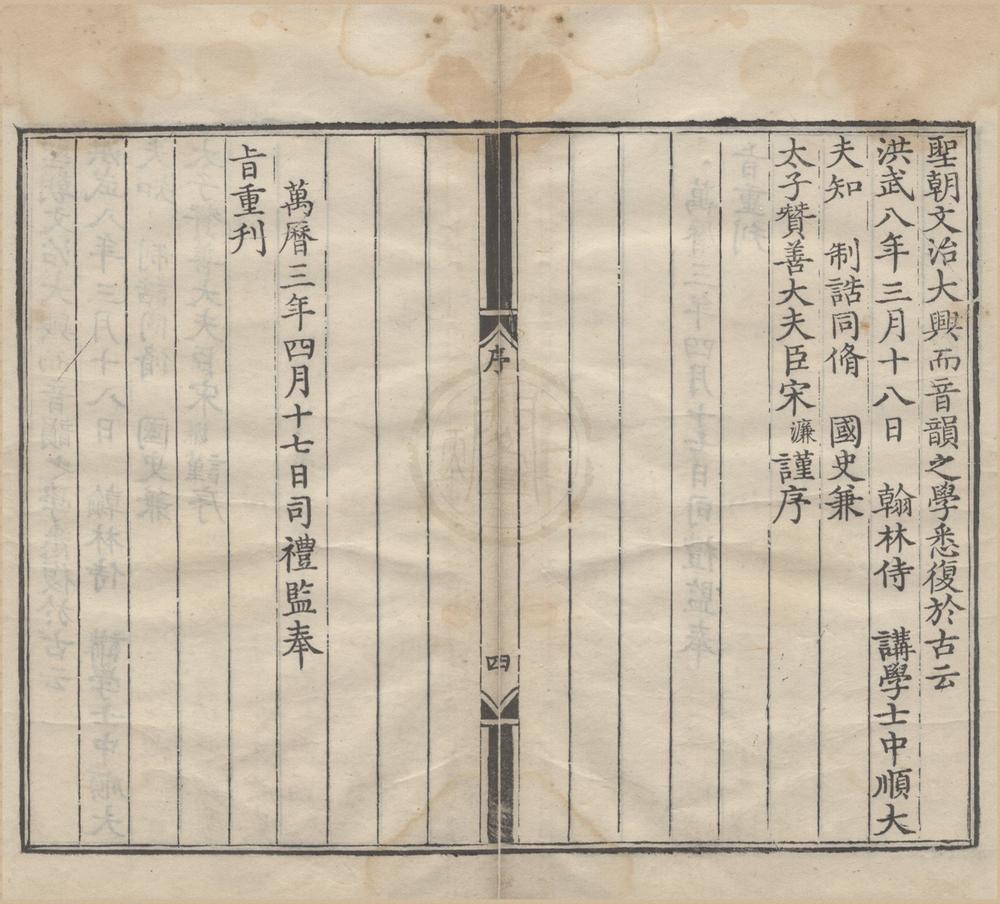 聖朝文治大興而音韻之學悉復於古云
洪武八年三月十八日　翰林侍　講學士中順大
夫知　制誥同脩　國史兼
太子贊善大夫臣宋濂謹序
序
四
萬曆三年四月十七日司禮監奉
旨重刊